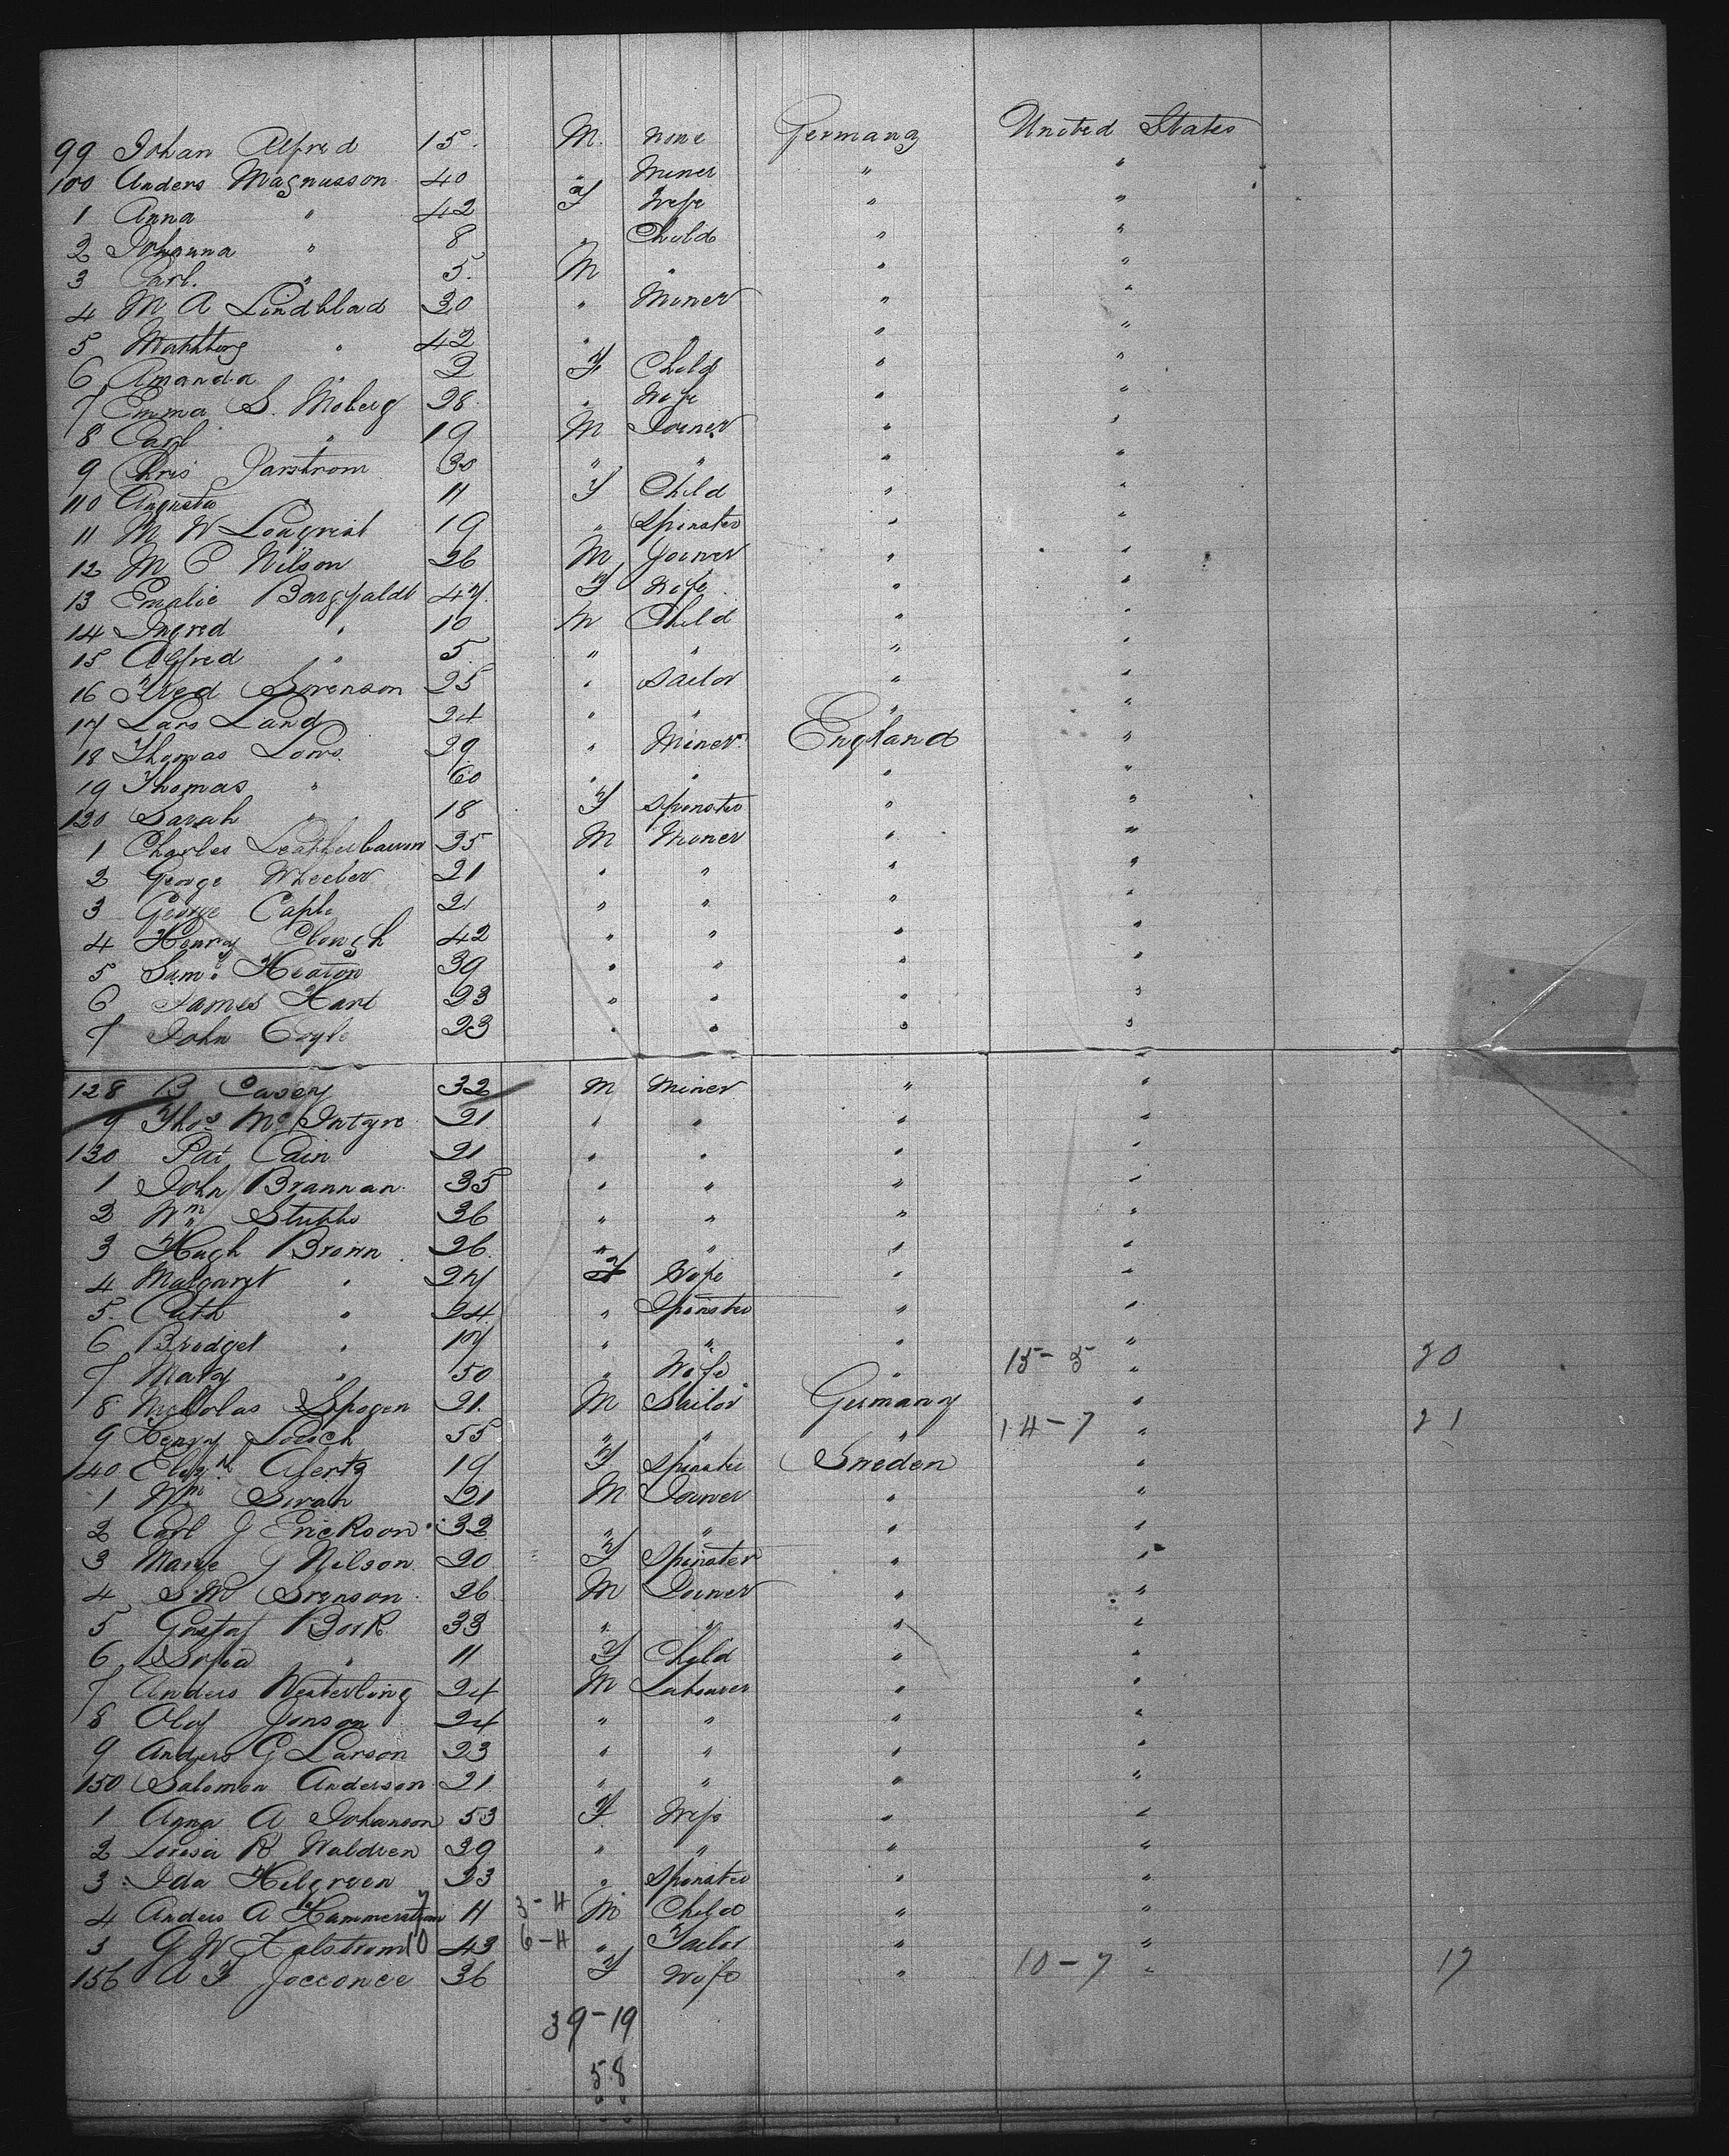 99 Johan Alfred 15 M. None Germany United States
100 Anders Magnusson 40 " Miner " "
1 Anna " 42 F Wife " "
2 Johanna " 8 " Child " "
3 Carl " 5 M " " "
4 M A Lindblad 30 " Miner " "
5 " 42 " " " "
6 Amanda " 2 F Child " "
7 Emma S. Moberg 28 " Wife " "
8 Carl " 19 M Joiner " "
9 Chris Jarstrom 30 " " " "
110 Augusta 11 F Child " "
11 M W 19 " Spinster " "
12 M C Nilson 26 M Joiner " "
13 Emalie 47 F Wife " "
14 Ingred " 10 M Child " "
15 Alfred " 5 " " " "
16 Fred Sorenson 25 " Sailor " "
17 Lars Land 24 " " " "
18 Thomas Lows 29 " Miner England "
19 Thomas " 60 " " " "
120 Sarah " 18 F Spinster " "
1 Charles 25 M Miner " "
2 George Wheeler 21 " " " "
3 George 21 " " " "
4 Henry Clough 42 " " " "
5 Saml Heaton 39 " " " "
6 James Hart 23 " " " "
7 John Coyle 23 " " " "
128 B Casey 32 M Miner " "
9 Thos McIntyre 21 " " " "
130 Pat Cain 21 " " " "
1 John Brannan 35 " " " "
2 Wm Stubbs 36 " " " "
3 Hugh Brown 26 " " " "
4 Margaret " 27 F Wife " "
5 Cath " 24 " Spinster " "
6 Bridget " 17 " " " "
7 Mary " 50 " Wife " 15-5 " 20
8 Nicholas Spogen 21 M Sailor Germany "
9 Henry 55 " " " 14-7 " 21
140 Elizth 19 F Spinster Sweden "
1 Wm Swan 21 M Joiner " "
2 Carl J Erickson 32 " " " "
3 Marie G Nilson 20 F Spinster " "
4 S. M Srenson 26 M Joiner " "
5 Gustaf Bork 33 " " " "
6 Sofia " 11 F Child " "
7 Anders Westerling 24 M Labourer " "
8 Olof Jonson 24 " " " "
9 Anders G Larson 23 " " " "
150 Salomon Anderson 21 " " " "
1 Anna A Johanson 53 F Wife " "
2 Lovisa R Waldren 39 " " " "
3 Ida Hilgreen 23 " Spinster " "
4 Anders A Hammerstrom 7 11 3-4 M Child " "
5 G W Halstrom 10 43 6-4 " Tailor " "
156 A F 36 F Wife " 10-7 " 17
39-19
58